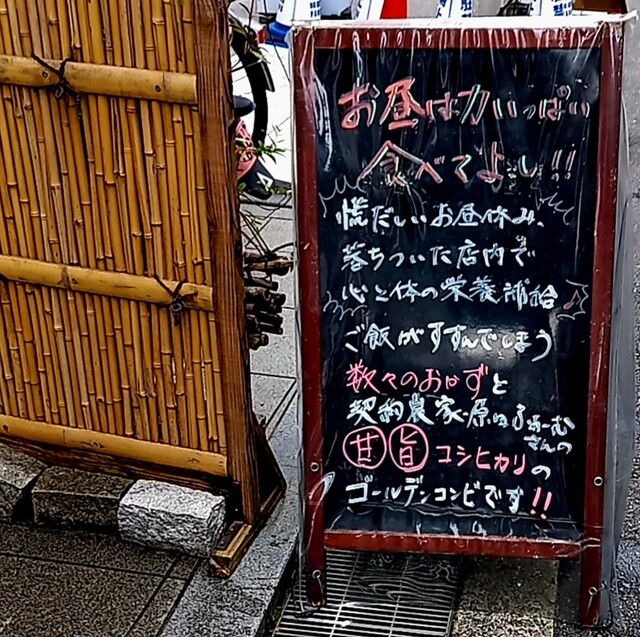 お昼は力いっぱい
食べてよし!!
慌だしいお昼休み、
落ちついた店内で
心と体の栄養補給♪
ご飯がすすんでしまう
数々のおかずと
契約農家・原田ふぁーむ
さんの
甘旨コシヒカリの
ゴールデンコンビです!!